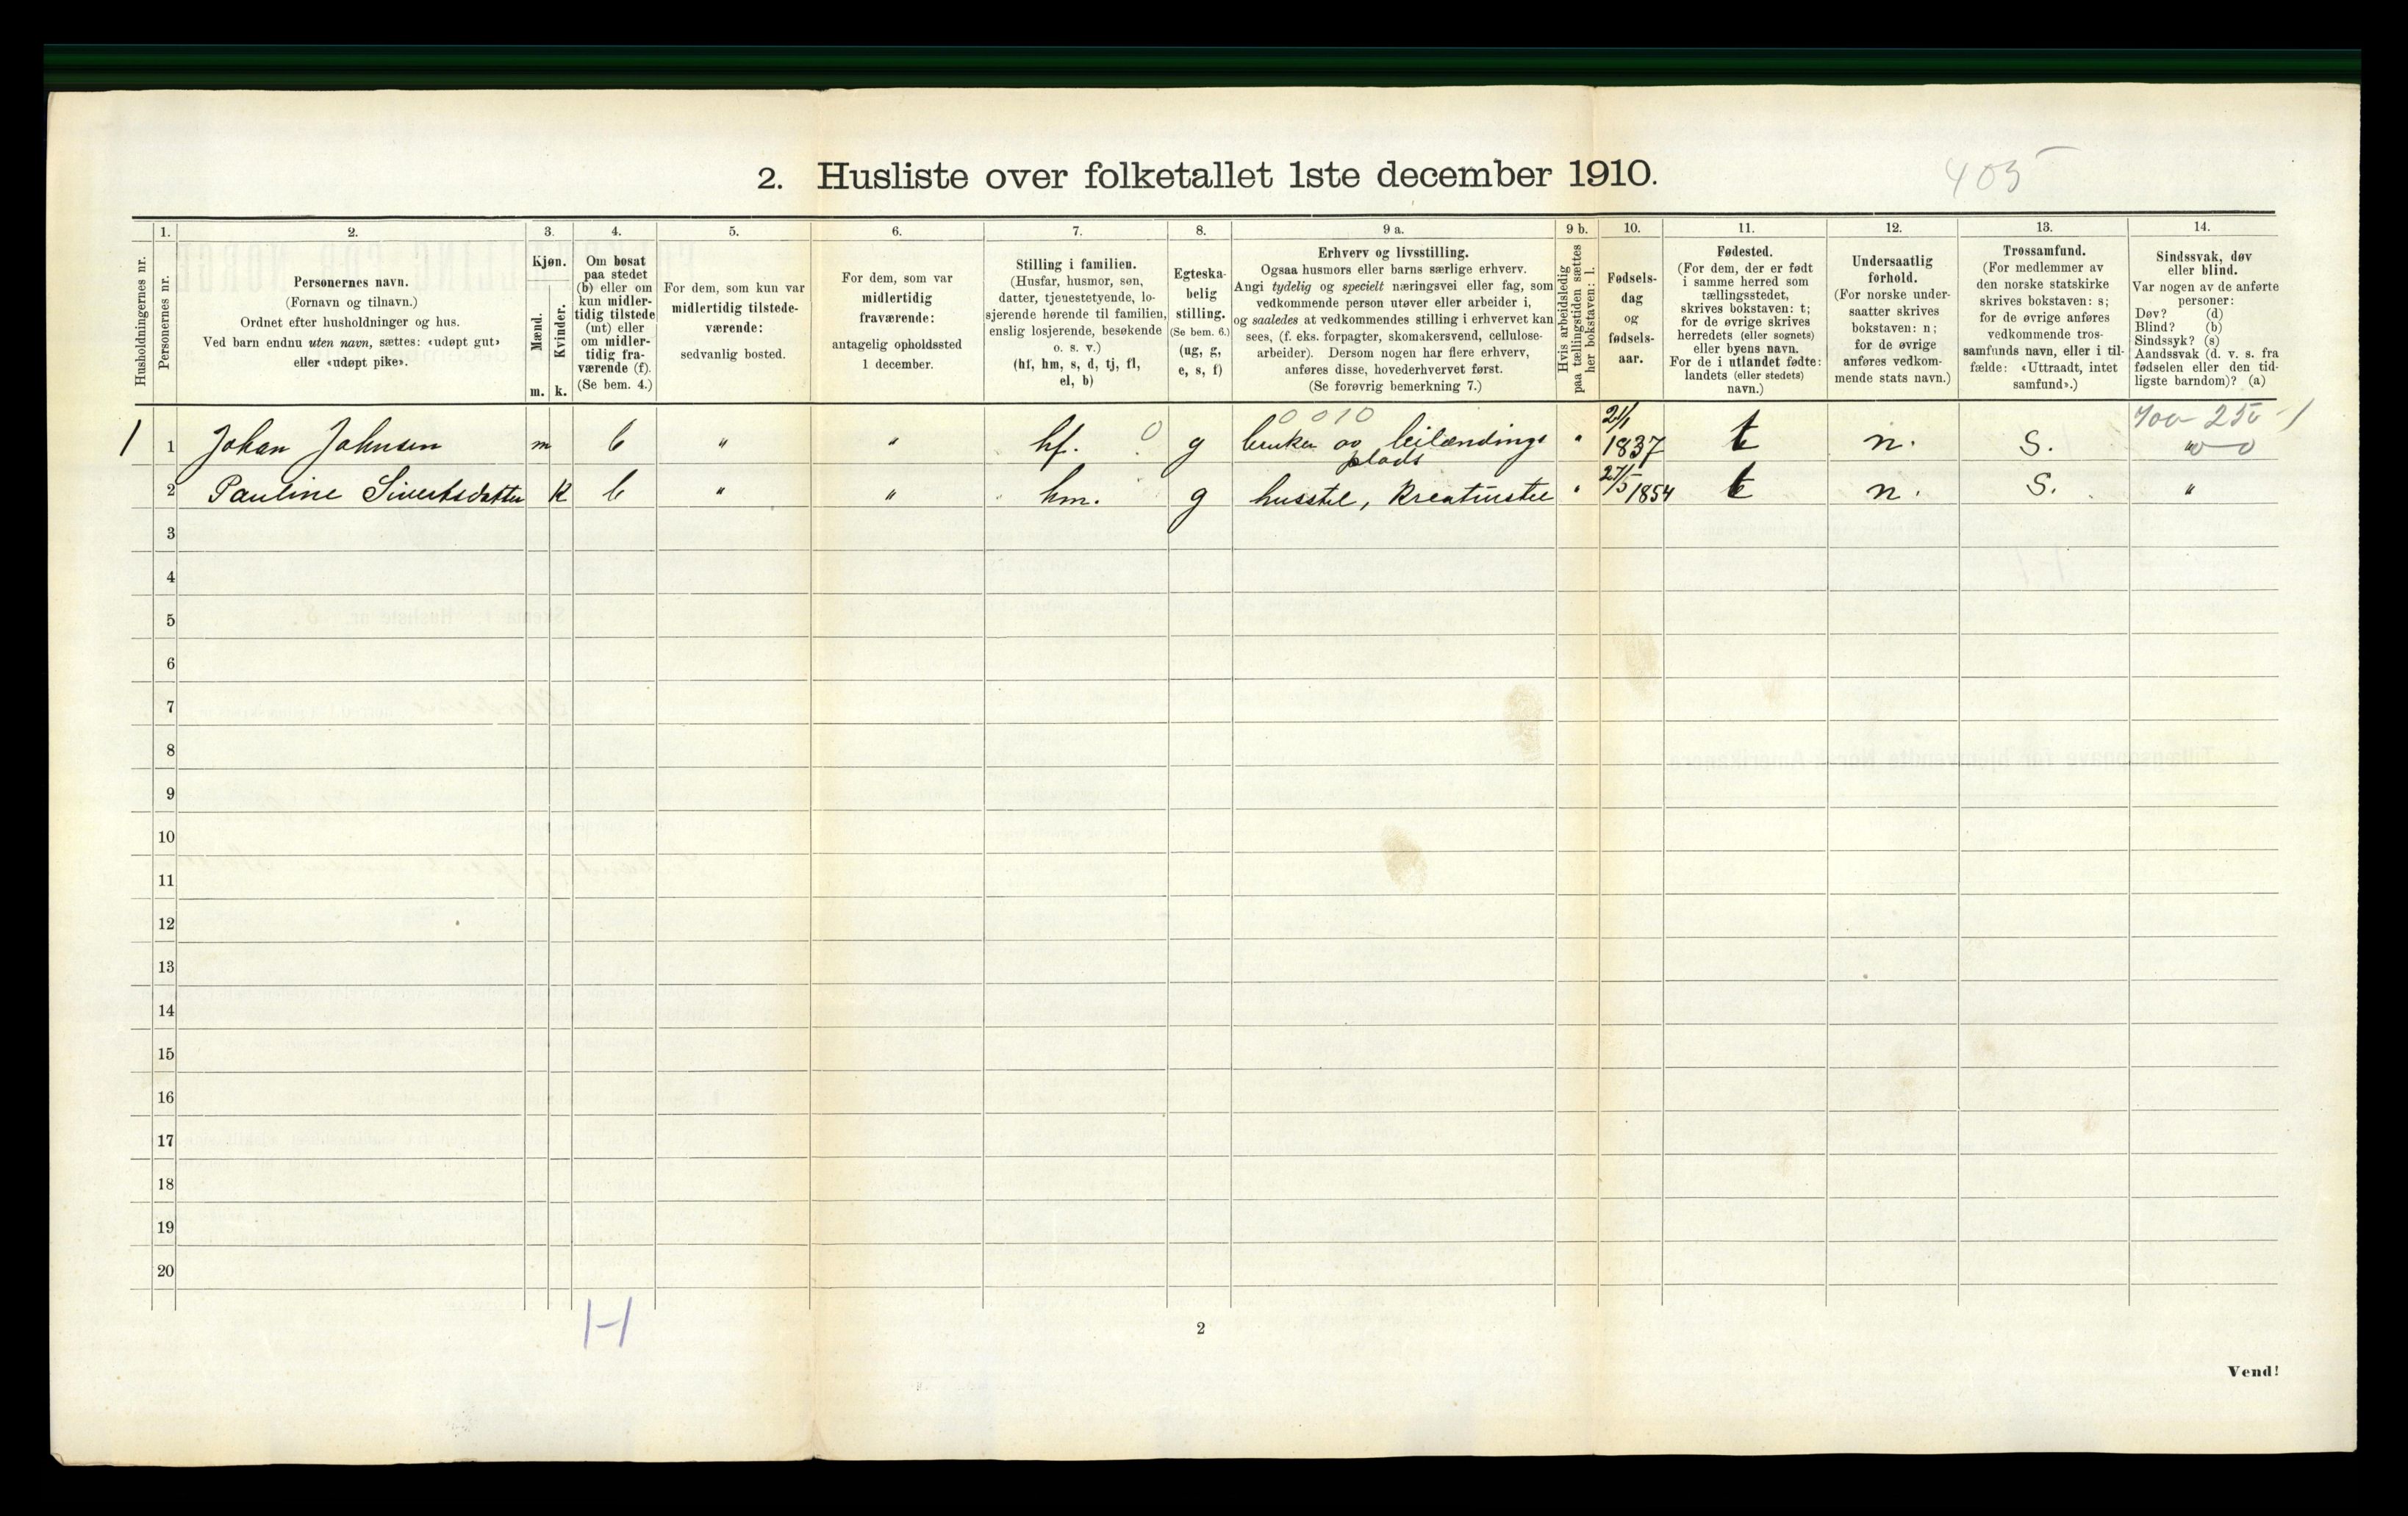 2. Husliste over folketallet 1ste december 1910.
405
Husholdningernes nr.
1.
Personernes nr.
2.
Personernes navn.
(Fornavn og tilnavn.)
Ordnet efter husholdninger og hus.
Ved barn endnu uten navn, sættes: «udøpt gut»
eller «udøpt pike».
3.
Kjøn.
Mænd.
m.
Kvinder.
k.
4.
Om bosat
paa stedet
(b) eller om
kun midler-
tidig tilstede
(mt) eller
om midler-
tidig fra-
værende (f).
(Se bem. 4.)
5.
For dem, som kun var
midlertidig tilstede-
værende:
sedvanlig bosted.
6.
For dem, som var
midlertidig
fraværende:
antagelig opholdssted
1 december.
7.
Stilling i familien.
(Husfar, husmor, søn,
datter, tjenestetyende, lo-
sjerende hørende til familien,
enslig losjerende, besøkende
o. s. v.)
(hf, hm, s, d, tj, fl,
el, b)
8.
Egteska-
belig
stilling.
(Se bem. 6.)
(ug, g,
e, s, f)
9 a.
Erhverv og livsstilling.
Ogsaa husmors eller barns særlige erhverv.
Angi tydelig og specielt næringsvei eller fag, som
vedkommende person utøver eller arbeider i,
og saaledes at vedkommendes stilling i erhvervet kan
sees, (f. eks. forpagter, skomakersvend, cellulose-
arbeider). Dersom nogen har flere erhverv,
anføres disse, hovederhvervet først.
(Se forøvrig bemerkning 7.)
9 b.
Hvis arbeidsledig
paa tællingstiden sættes
her bokstaven: l.
10.
Fødsels-
dag
og
fødsels-
aar.
11.
Fødested.
(For dem, der er født
i samme herred som
tællingsstedet,
skrives bokstaven: t;
for de øvrige skrives
herredets (eller sognets)
eller byens navn.
For de i utlandet fødte:
landets (eller stedets)
navn.)
12.
Undersaatlig
forhold.
(For norske under-
saatter skrives
bokstaven: n;
for de øvrige
anføres vedkom-
mende stats navn.)
13.
Trossamfund.
(For medlemmer av
den norske statskirke
skrives bokstaven: s;
for de øvrige anføres
vedkommende tros-
samfunds navn, eller i til-
fælde: «Uttraadt, intet
samfund».)
14.
Sindssvak, døv
eller blind.
Var nogen av de anførte
personer:
Døv? (d)
Blind? (b)
Sindssyk? (s)
Aandssvak (d. v. s. fra
fødselen eller den tid-
ligste barndom)? (a)
0 0 10 21/1 700-250-1
1 1 Johan Johnsen m b " " hf. 0 g bruker av leilændings " 1837 t n. S. " 0
plads
2 Pauline Sivertsdatter k b " " hm. g husstel, kreaturstel " 27/5 1854 t n. S. "
3
4
5
6
7
8
9
10
11
12
13
14
15
16
17
18
19
20
2
Vend!